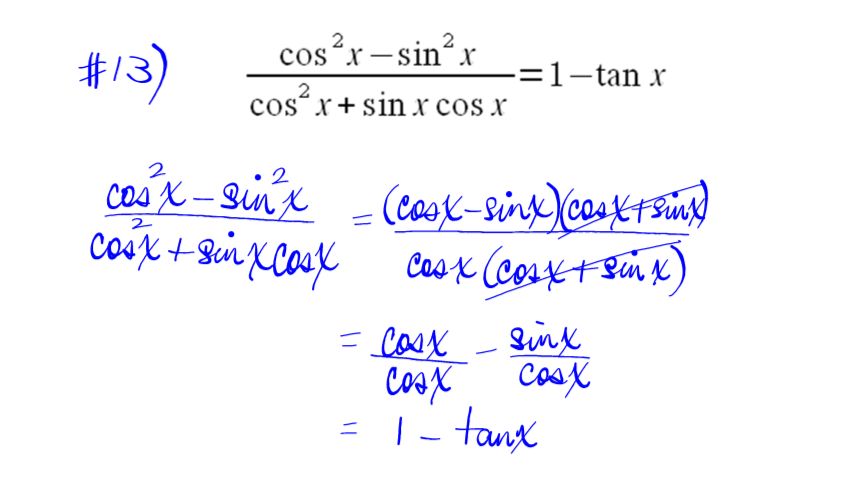 #13) (cos²x − sin²x)/(cos²x + sin x cos x) = 1 − tan x
(cos²x − sin²x)/(cos²x + sinx cosx) = (cosx − sinx)(cosx + sinx)/(cosx (cosx + sinx))
= cosx/cosx − sinx/cosx
= 1 − tanx